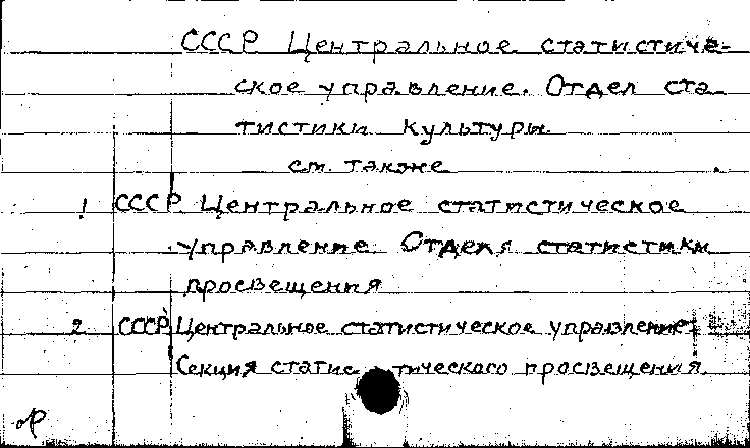 СССР Центральное статистиче-
ское управление. Отдел ста-
тистики культуры.
см. также
1 СССР Центральное статистическое
управление. Отдел статистики
просвещения
2 СССР Центральное статистическое управление.
Секция статистического просвещения.